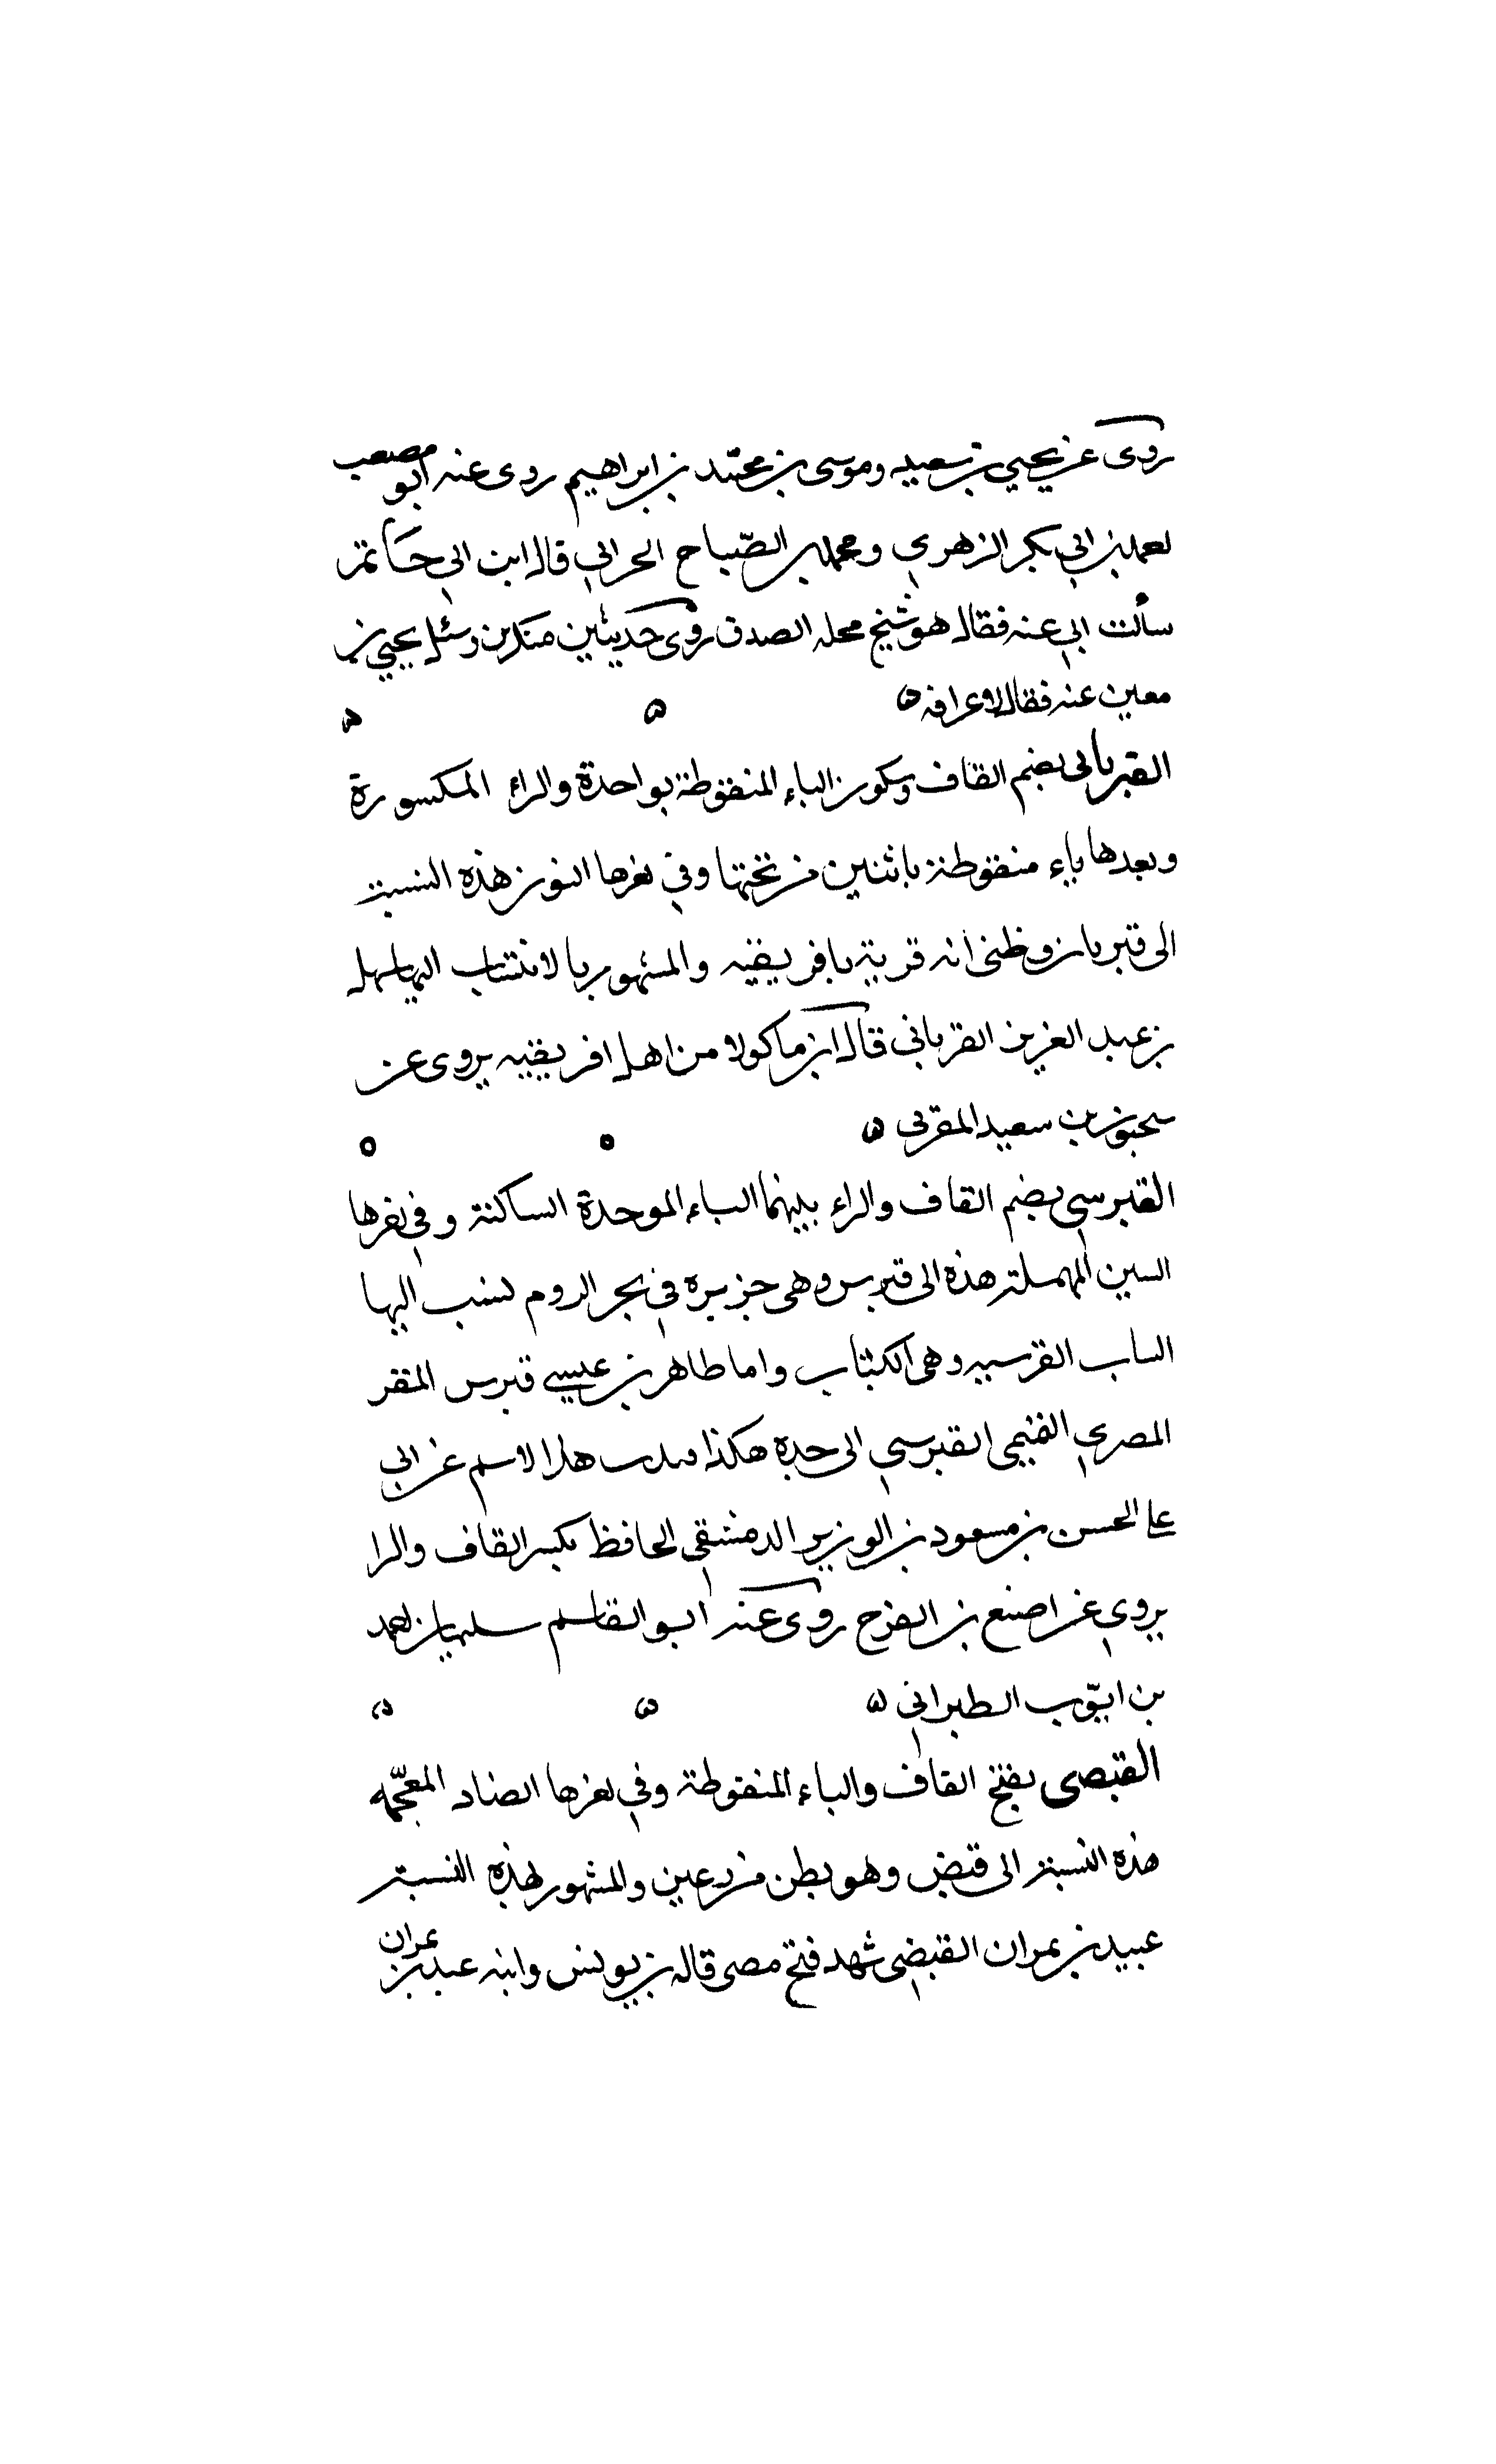 روى عن يحيى بن سعيد وموسى بن محمّد بن ابراهيم روى عنه ابو مصعب
احمد بن ابي بكر الزهري ومحمد بن الصّباح الحراني قال ابن ابي حَاتم
سألت ابي عنه فقال هو شيخ محله الصدق روى حديثين منكرين وسئل يحيى بن
معين عنه فقال لا اعرفه ه ه ه
القبرياني بضم القاف وسكون الباء المنقوطة بواحدة والراء المكسورة
وبعدها ياء منقوطة باثنين من تحتها وفي اخرها النون هذه النسبة
الى قبريان وظني أنه قرية بافريقيه والمشهور بالانتساب اليها سهل
بن عبد العزيز القرباني قال ابن ماكولا من اهل افريقيه يروى عن
سحنون بن سعيد المقرى ه ه ه
القبرسي بضم القاف والراء بينهما الباء الموحدة الساكنة وفي اخرها
السين المهملة هذه الى قبرس وهى جزيره في بحر الروم نسب اليها
الساب القرسيه وهى الكتاب واما طاهر بن عيسى قبرس المقر
المصري القبرسي الى جده هكذا هذا الاسم عن ابي
على الحسن بن مسعود بن الوزير الدمشقي الحافظ بكسر القاف والرا
يروي عن اصبغ بن الفرج روى عنه ابو القاسم سليمان بن احمد
بن ايّوب الطبراني ه ه ه
القبصى بفتح القاف والباء المنقوطة وفي اخرها الضاد المعجّمه
هذه النسبة الى قبض وهو بطن من رعين والمشهور لهذه النسبة
عبيد بن نمران القبضي شهد فتح مصر قاله بن يونس وابنه عبد بن نمران